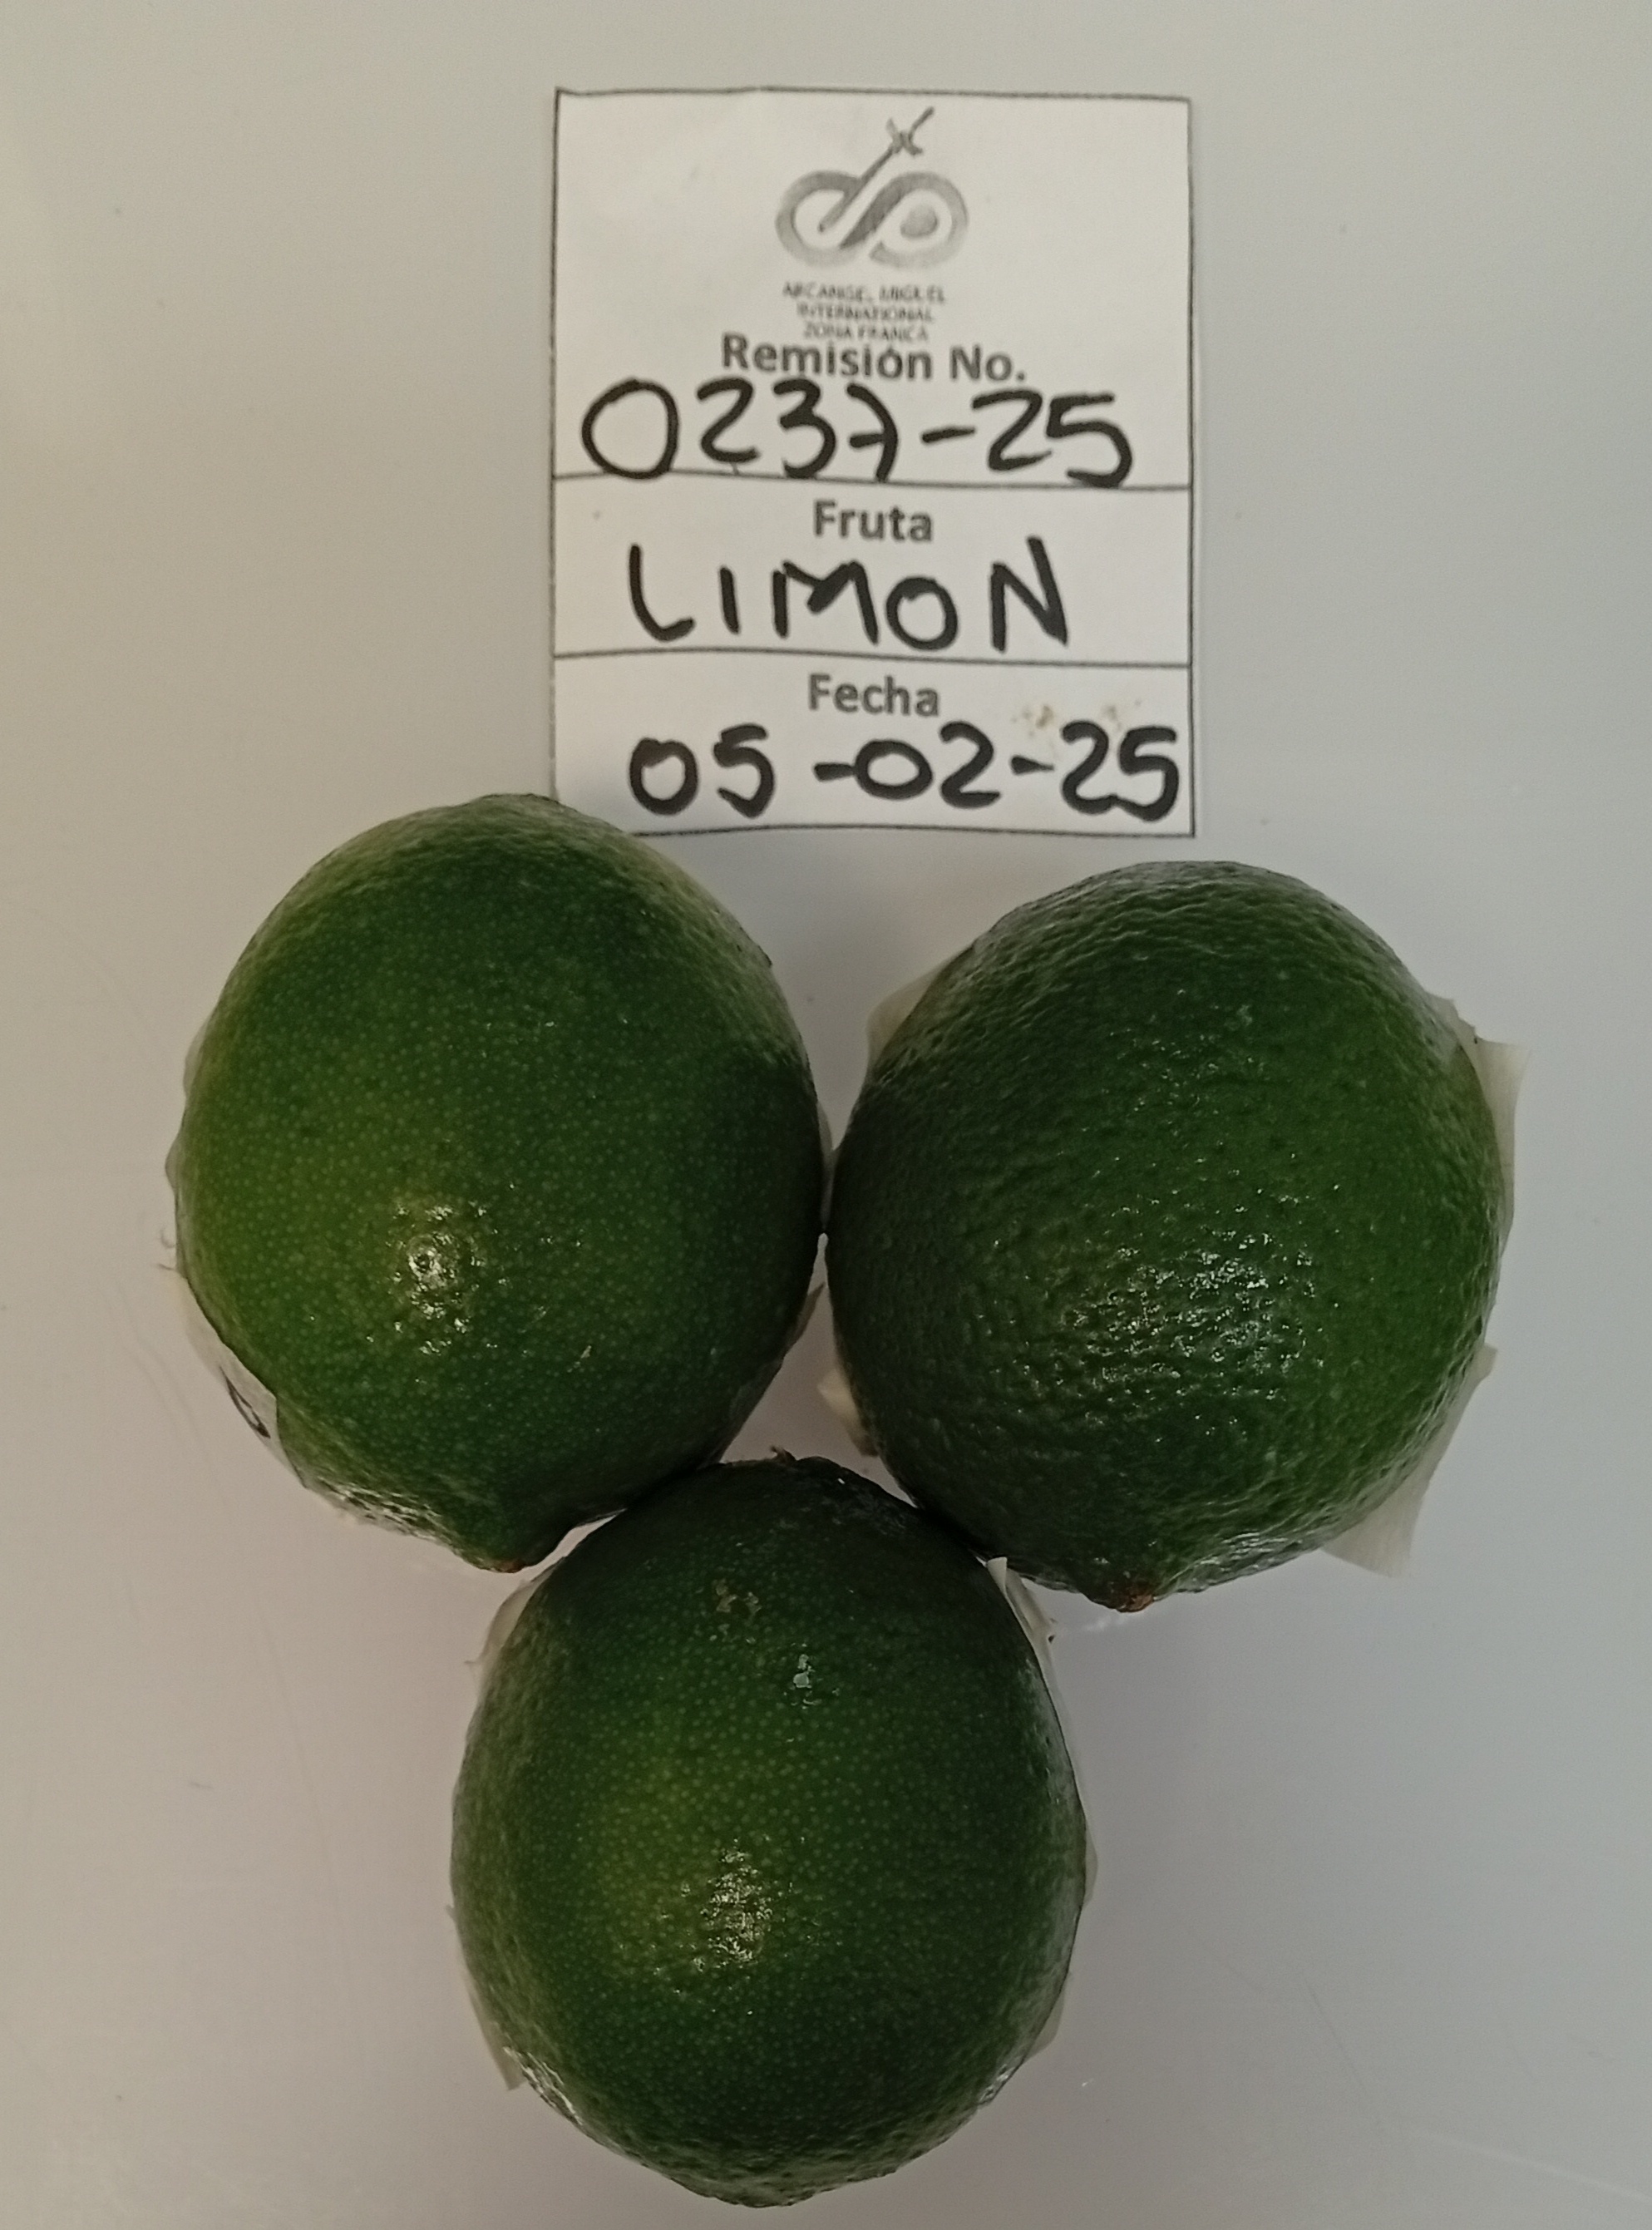 ARCANGEL MIGUEL
INTERNATIONAL
ZONA FRANCA
Remisión No.
0237-25
Fruta
LIMON
Fecha
05-02-25